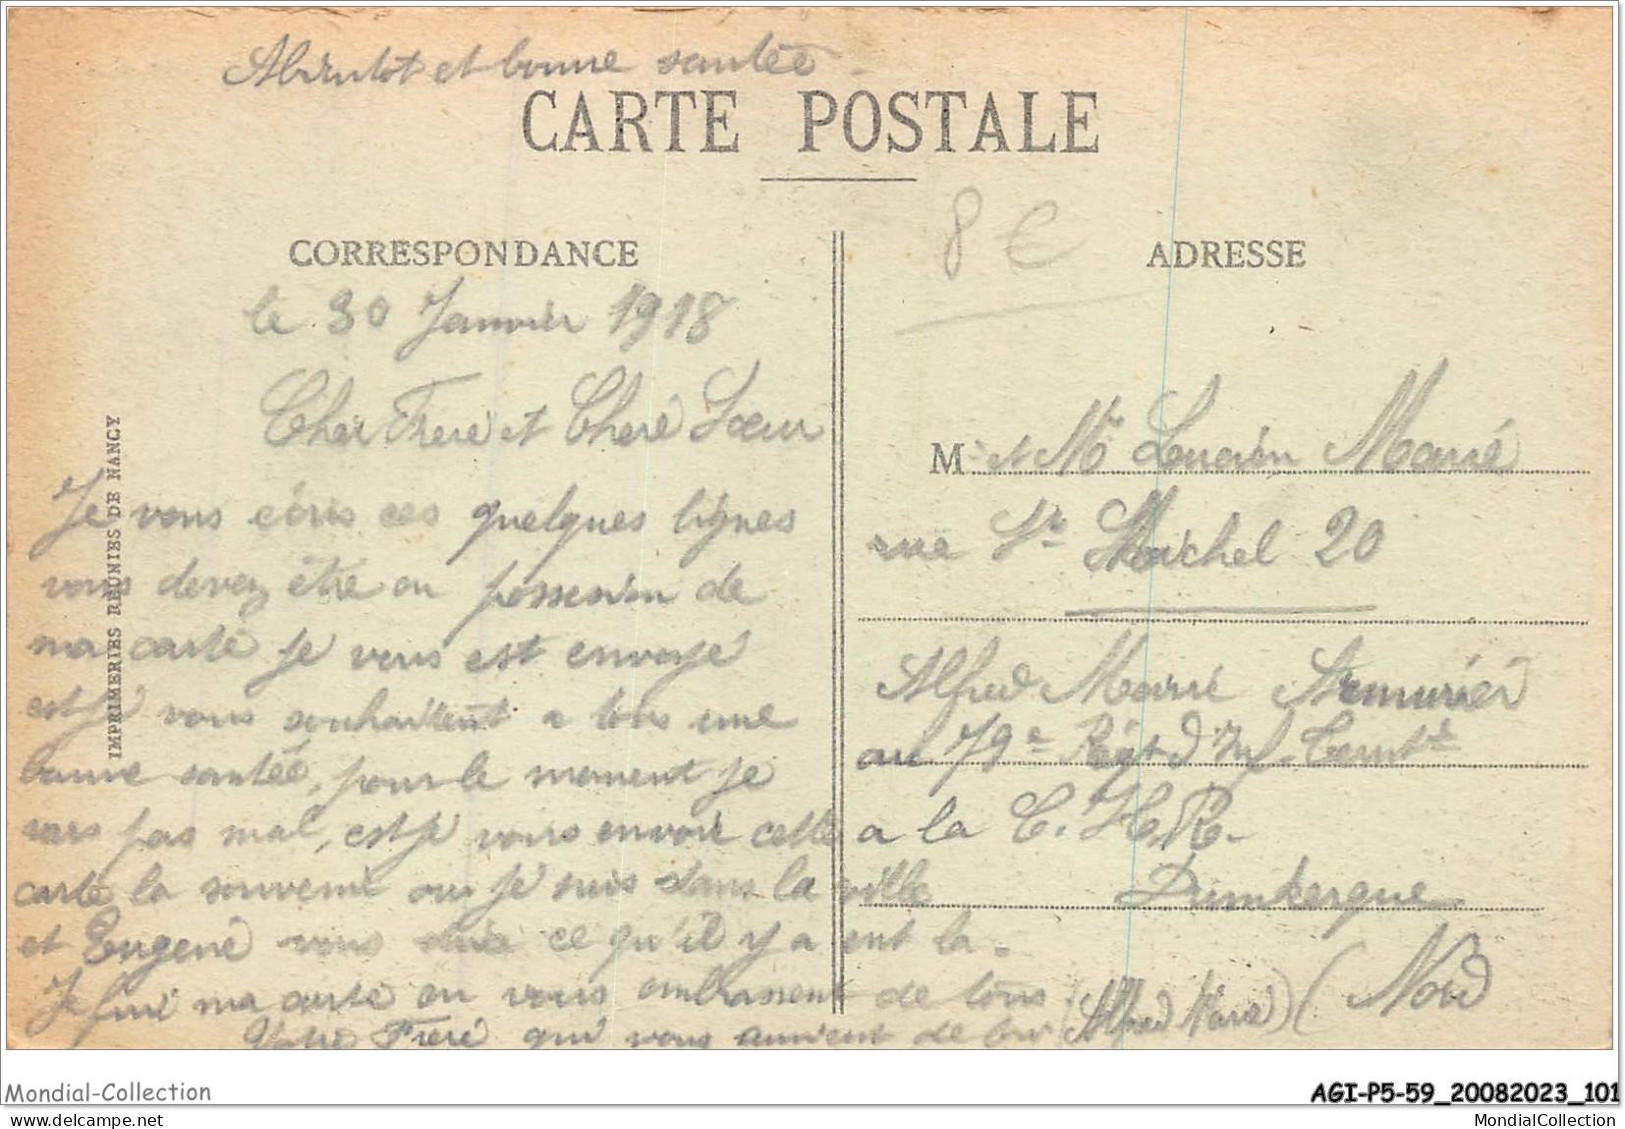 Abientot et bonne santée
CARTE POSTALE
8 €
CORRESPONDANCE
le 30 Janvier 1918
Cher Frere et Chere Sœur
Je vous écris ces quelques lignes
vous devez être on possession de
ma carte je vous est envoyé
est je vous souhaitent a tous une
bonne santée, pour le moment je
vais pas mal, est je vous envoie cette
carte la souvenir ou je suis dans la ville
et Eugene vous dire ce qu'il y a ent la.
Je fini ma carte on vous ombrassent de tous
Votre Frere qui vous aiment de loin (Alfred Marié)
ADRESSE
M et Mme Lucien Marié
rue St Michel 20
Alfred Marié Armurier
au 79e Régt d'Inf. Terrt
a la C.H.R.
Dunkerque
(Nord
IMPRIMERIES REUNIES DE NANCY
Mondial-Collection
AGI-P5-59_20082023_101
MondialCollection